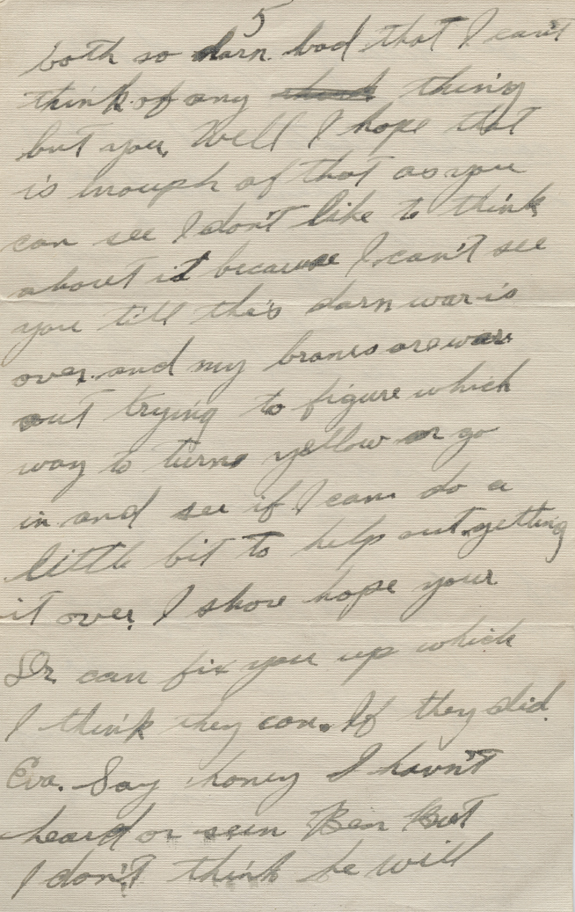 5
both so darn bad that I can't
think of any thing
but you. Well I hope that
is inough of that as you
can see I don't like to think
about it because I can't see
you till this darn war is
over. and my branes are war
out trying to figure which
way to turn yellow or go
in and see if I can do a
little bit to help out getting
it over. I shore hope your
Dr. can fix you up which
I think they can. If they did
Eva. Say honey I havn't
heard or seen Ben But
I don't think he will